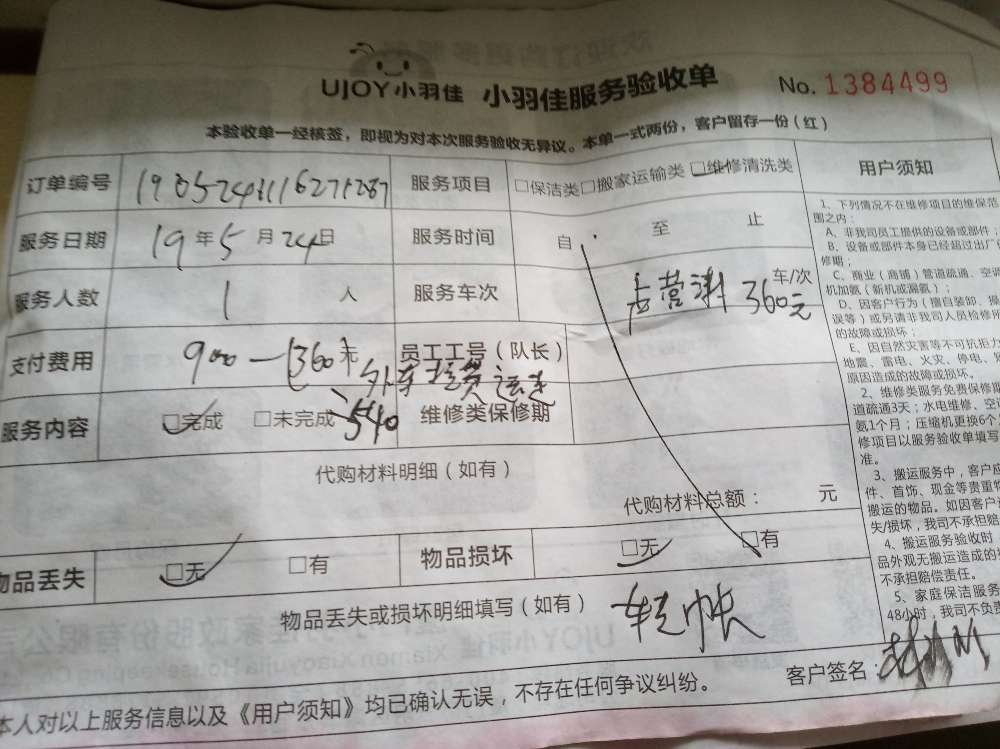 UJOY小羽佳 小羽佳服务验收单 No. 1384499
本验收单一经核签，即视为对本次服务验收无异议。本单一式两份，客户留存一份（红）
订单编号 服务项目 □保洁类 □搬家运输类 □维修清洗类
服务日期 19年5月24日 服务时间 自 至 止
服务人数 1 人 服务车次 360元 车/次
支付费用 900-360 员工工号（队长）
服务内容 □完成 □未完成 540 维修类保修期
代购材料明细（如有）
代购材料总额： 元
物品丢失 □无 □有 物品损坏 □无 □有
物品丢失或损坏明细填写（如有） 转帐
客户签名：
本人对以上服务信息以及《用户须知》均已确认无误，不存在任何争议纠纷。
用户须知
1、下列情况不在维修项目的维保范
围之内：
A、非我司员工提供的设备或部件；
B、设备或部件本身已经超过出厂
修期；
C、商业（商铺）管道疏通、空调
机加氨（新机或漏氨）；
D、因客户行为（擅自装卸、操
误等）或另请非我司人员检修所
的故障或损坏；
E、因自然灾害等不可抗拒力
地震、雷电、火灾、停电、
原因造成的故障或损坏。
2、维修类服务免费保修期
道疏通3天；水电维修、空
氨1个月；压缩机更换6个
修项目以服务验收单填写
准。
3、搬运服务中，客户应
件、首饰、现金等贵重物
搬运的物品。如因客户
失/损坏，我司不承担赔
4、搬运服务验收时
品外观无搬运造成的
不承担赔偿责任。
5、家庭保洁服务
48小时，我司不负责